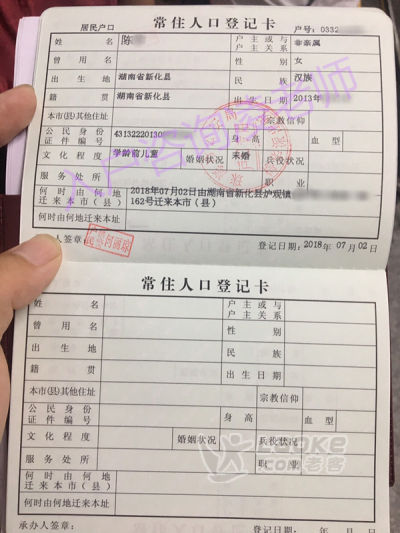 居民户口 常住人口登记卡 户号：0332
姓名 陈 户主或与户主关系 非亲属
曾用名 性别 女
出生地 湖南省新化县 民族 汉族
籍贯 湖南省新化县 出生日期 2013年
本市(县)其他住址 宗教信仰
公民身份证件编号 43132220130 身高 血型
文化程度 学龄前儿童 婚姻状况 未婚 兵役状况
服务处所
何时由何地迁来本市（县） 2018年07月02日由湖南省新化县炉观镇
162号迁来本市（县）
何时由何地迁来本址
承办人签章： 登记日期：2018年07月02日
常住人口登记卡
姓名 户主或与户主关系
曾用名 性别
出生地 民族
籍贯 出生日期
本市(县)其他住址 宗教信仰
公民身份证件编号 身高 血型
文化程度 婚姻状况 兵役状况
服务处所 职业
何时由何地迁来本市（县）
何时由何地迁来本址
承办人签章： 登记日期： 年 月 日
Laoke
.com老客